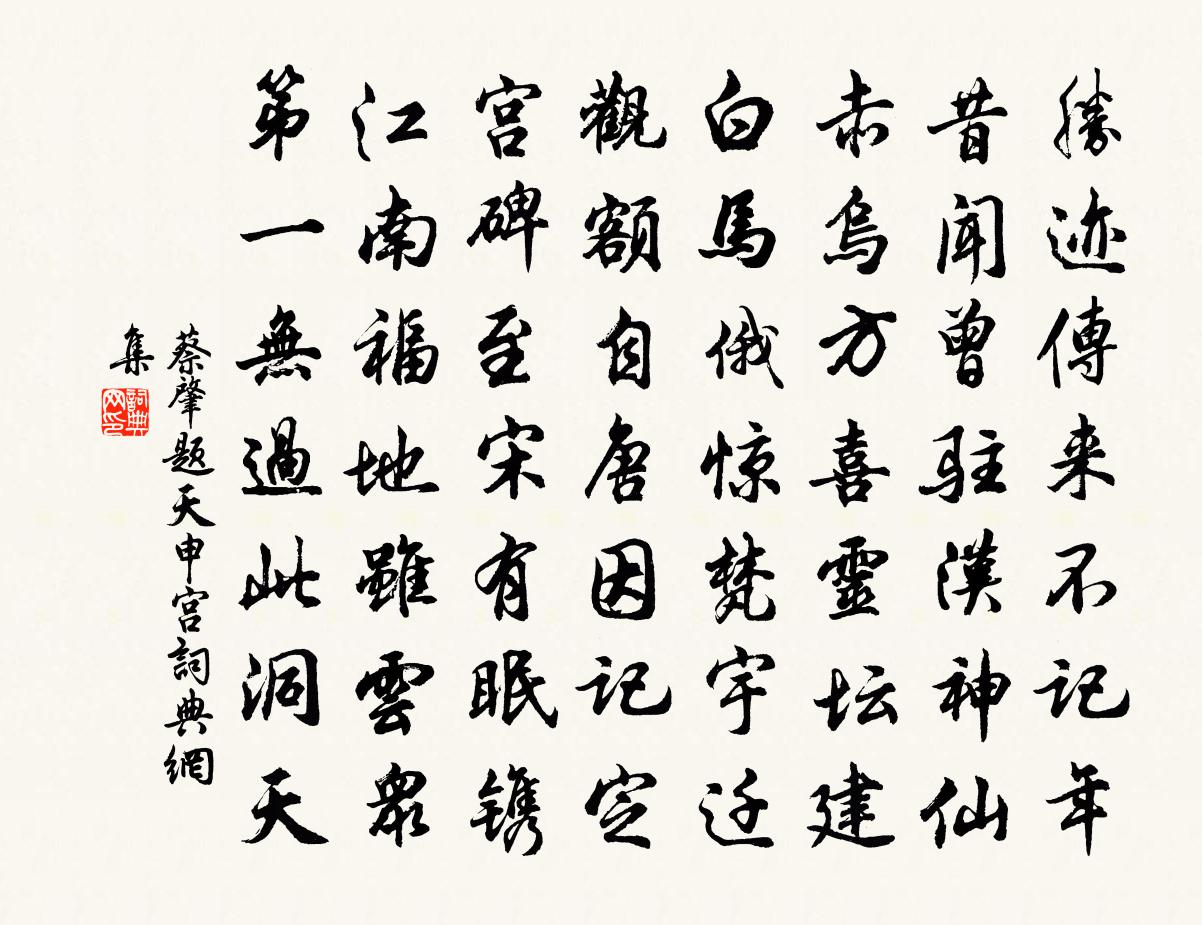 勝迹傳来不记年
昔聞曾驻漢神仙
赤烏方喜靈坛建
白馬俄惊梵宇迁
觀額自唐因记定
宫碑至宋有眠镌
江南福地雖雲衆
第一無過此洞天
蔡肇题天申宫詞典網
集
詞典网印